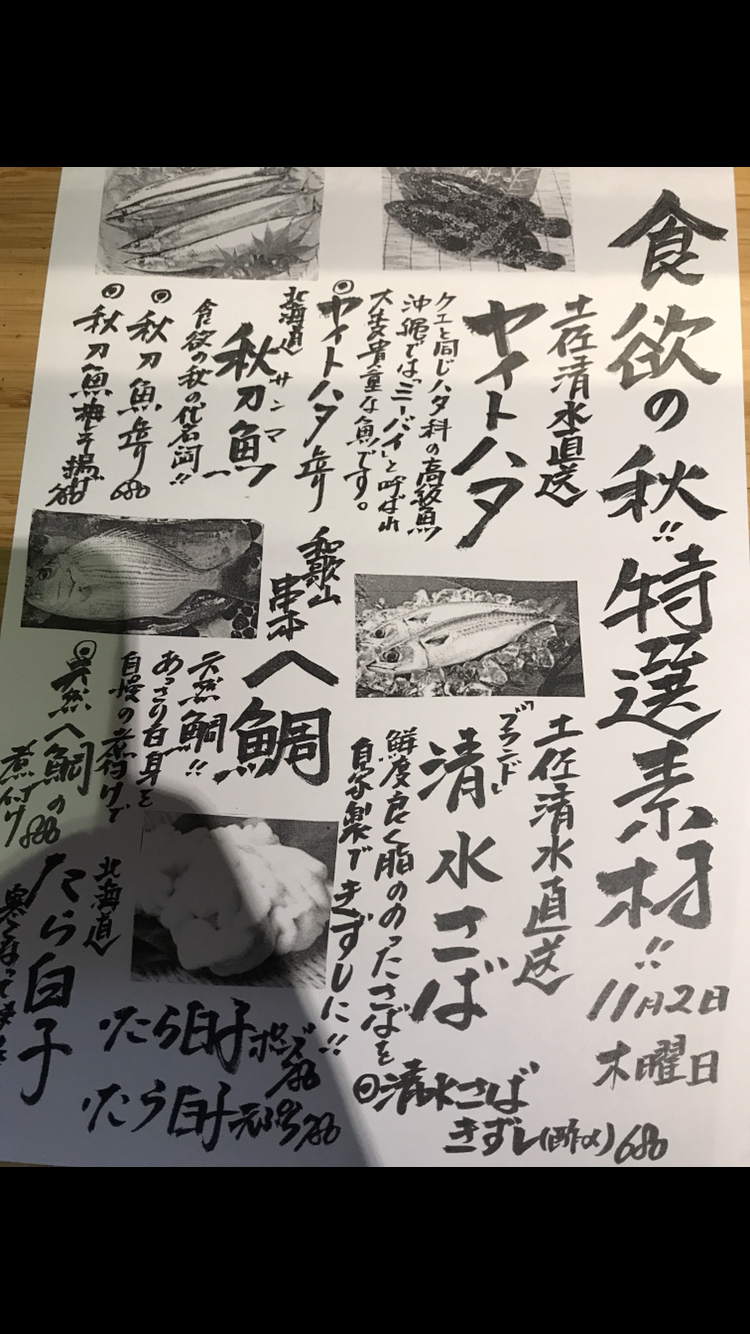 食欲の秋!! 特選素材!!
11月2日
木曜日
土佐清水直送
ヤイトハタ
クエと同じハタ科の高級魚
沖縄では「ミーバイ」と呼ばれ
大変貴重な魚です。
◎ヤイトハタ造
北海道
秋刀魚
サンマ
食欲の秋の代名詞!!
◎秋刀魚造 680
◎秋刀魚梅しそ揚げ 780
土佐清水直送
「ブランド」
清水さば
鮮度良く脂ののったさばを
自家製できずしに!!
◎清水さば
きずし(酢〆) 680
和歌山
串本
へ鯛
天然鯛!!
あっさり白身を
自慢の煮付けで
◎天然へ鯛の
煮付け 880
北海道
たら白子
寒くなってきた
たら白子ポン酢 780
たら白子天ぷら 780